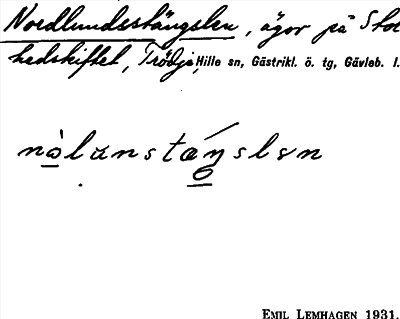 Nordlundsstängslen, ägor på Stor
hedskiftet, Trödje, Hille sn, Gästrikl. ö. tg, Gävleb. l.
nòlunstæŋslɐn
EMIL LEMHAGEN 1931.